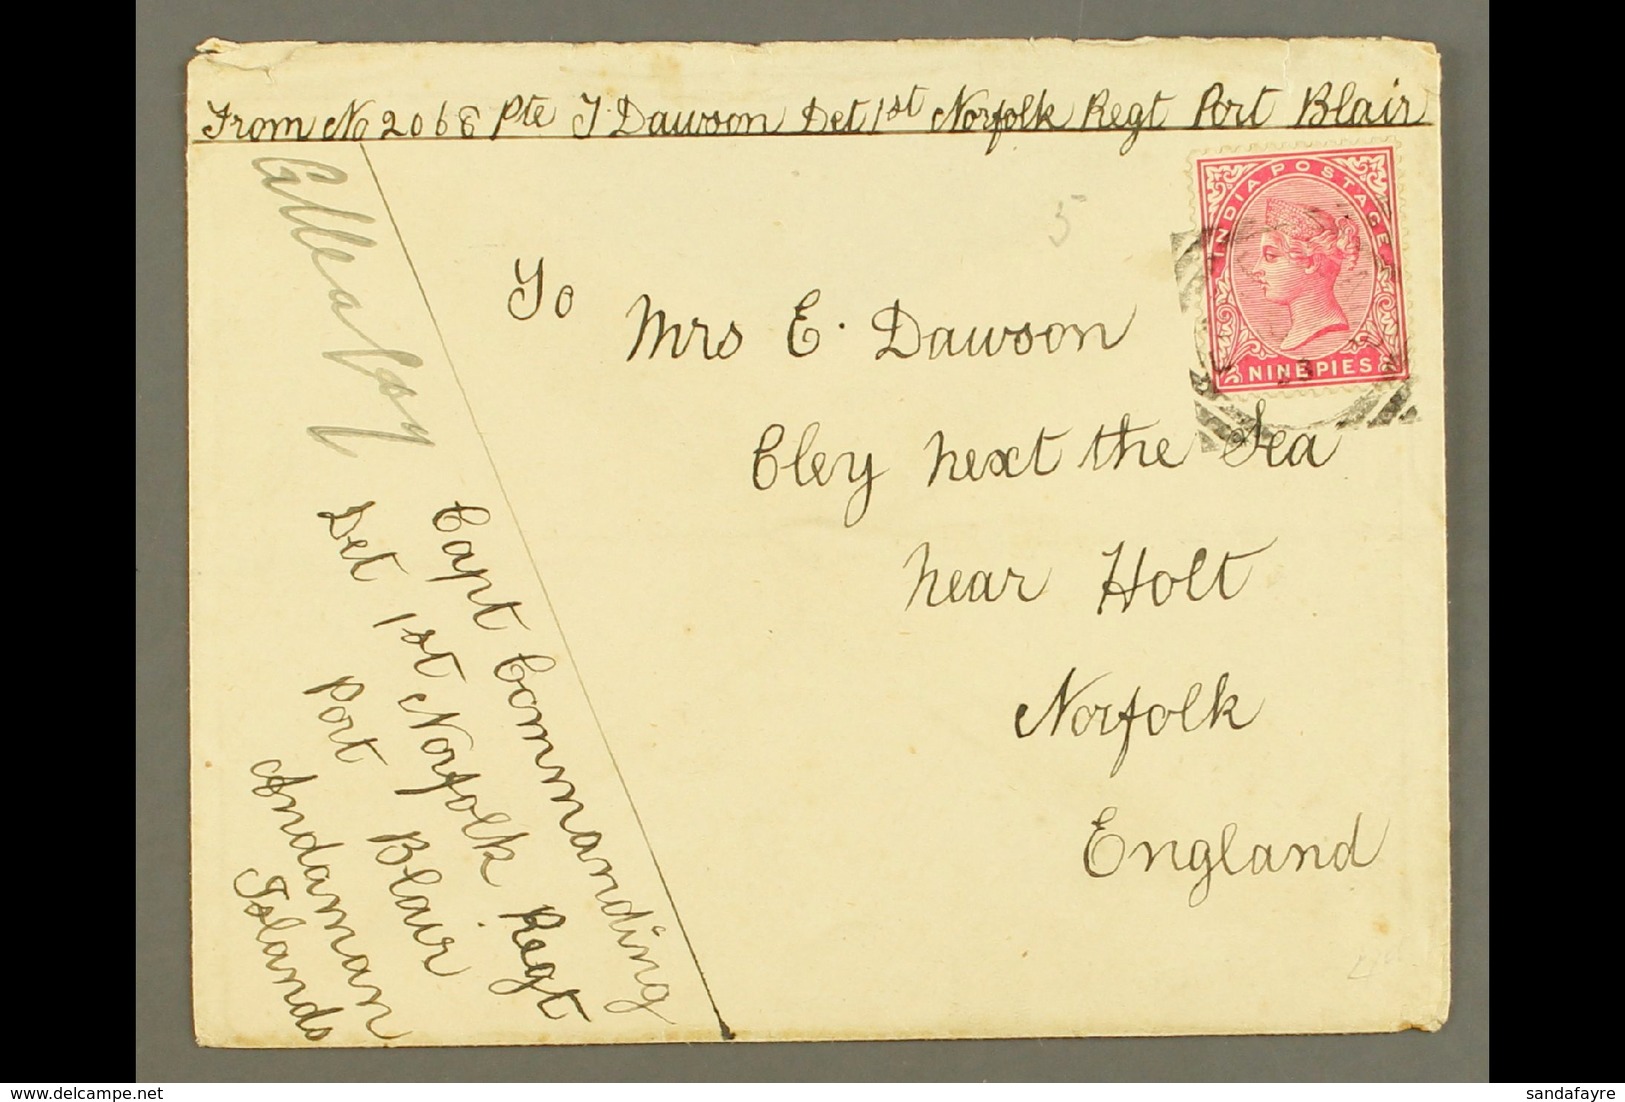 From No 2068 Pte J. Dawson Det 1st Norfolk Regt Port Blair
INDIA POSTAGE
NINE PIES
5
To
Mrs E. Dawson
Cley next the Sea
near Holt
Norfolk
England
Capt Commanding
Det 1st Norfolk Regt
Port Blair
Andaman
Islands
sandafayre